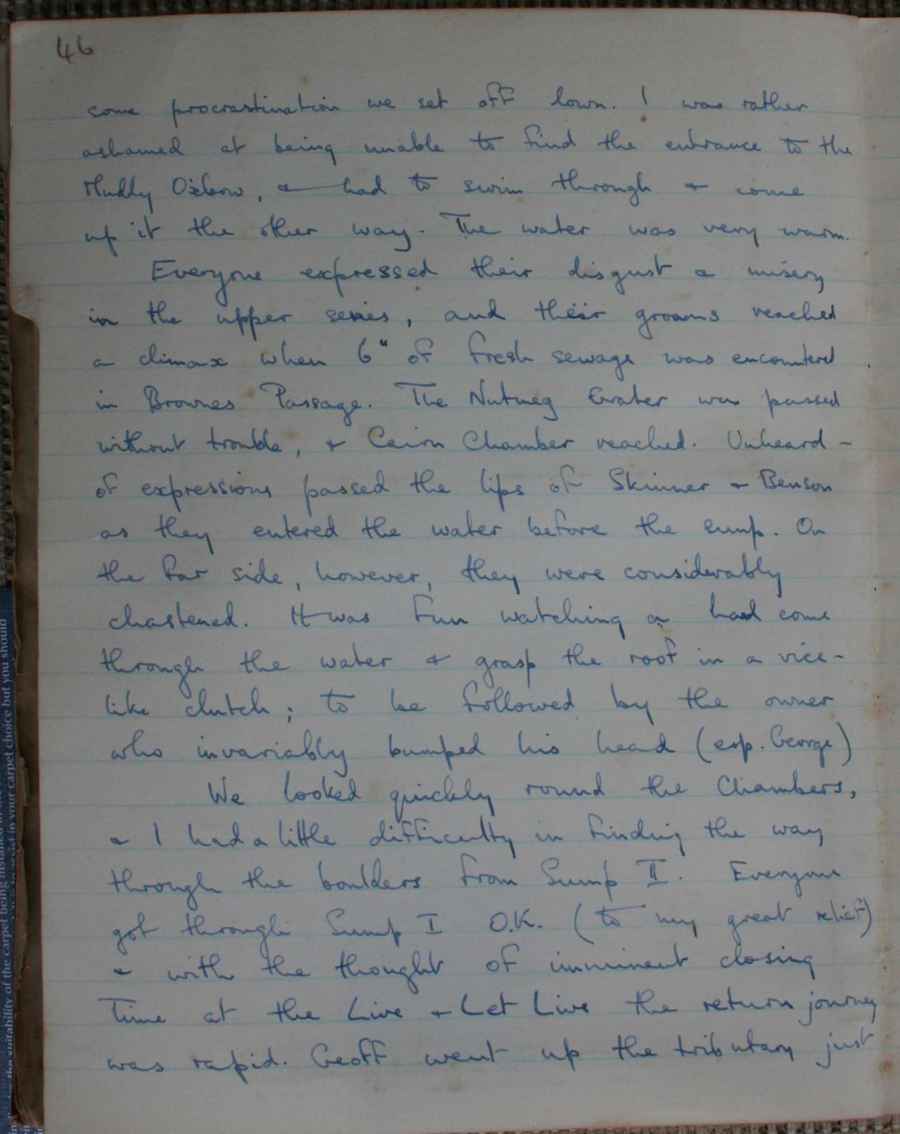 46
some procrastination we set off down. I was rather
ashamed at being unable to find the entrance to the
Muddy Oxbow, & had to swim through & come
up it the other way. The water was very warm.
Everyone expressed their disgust & misery
in the upper series, and their groans reached
a climax when 6" of fresh sewage was encountered
in Brownes Passage. The Nutmeg Grater was passed
without trouble, & Cairn Chamber reached. Unheard-
of expressions passed the lips of Skinner & Benson
as they entered the water before the sump. On
the far side, however, they were considerably
chastened. It was fun watching a hand come
through the water & grasp the roof in a vice-
like clutch; to be followed by the owner
who invariably bumped his head (esp. George)
We looked quickly round the Chambers,
& I had a little difficulty in finding the way
through the boulders from Sump II. Everyone
got through Sump I O.K. (to my great relief)
& with the thought of imminent closing
Time at the Live & Let Live the return journey
was rapid. Geoff went up the tributary just
the suitability of the carpet being
in your carpet choice but you should